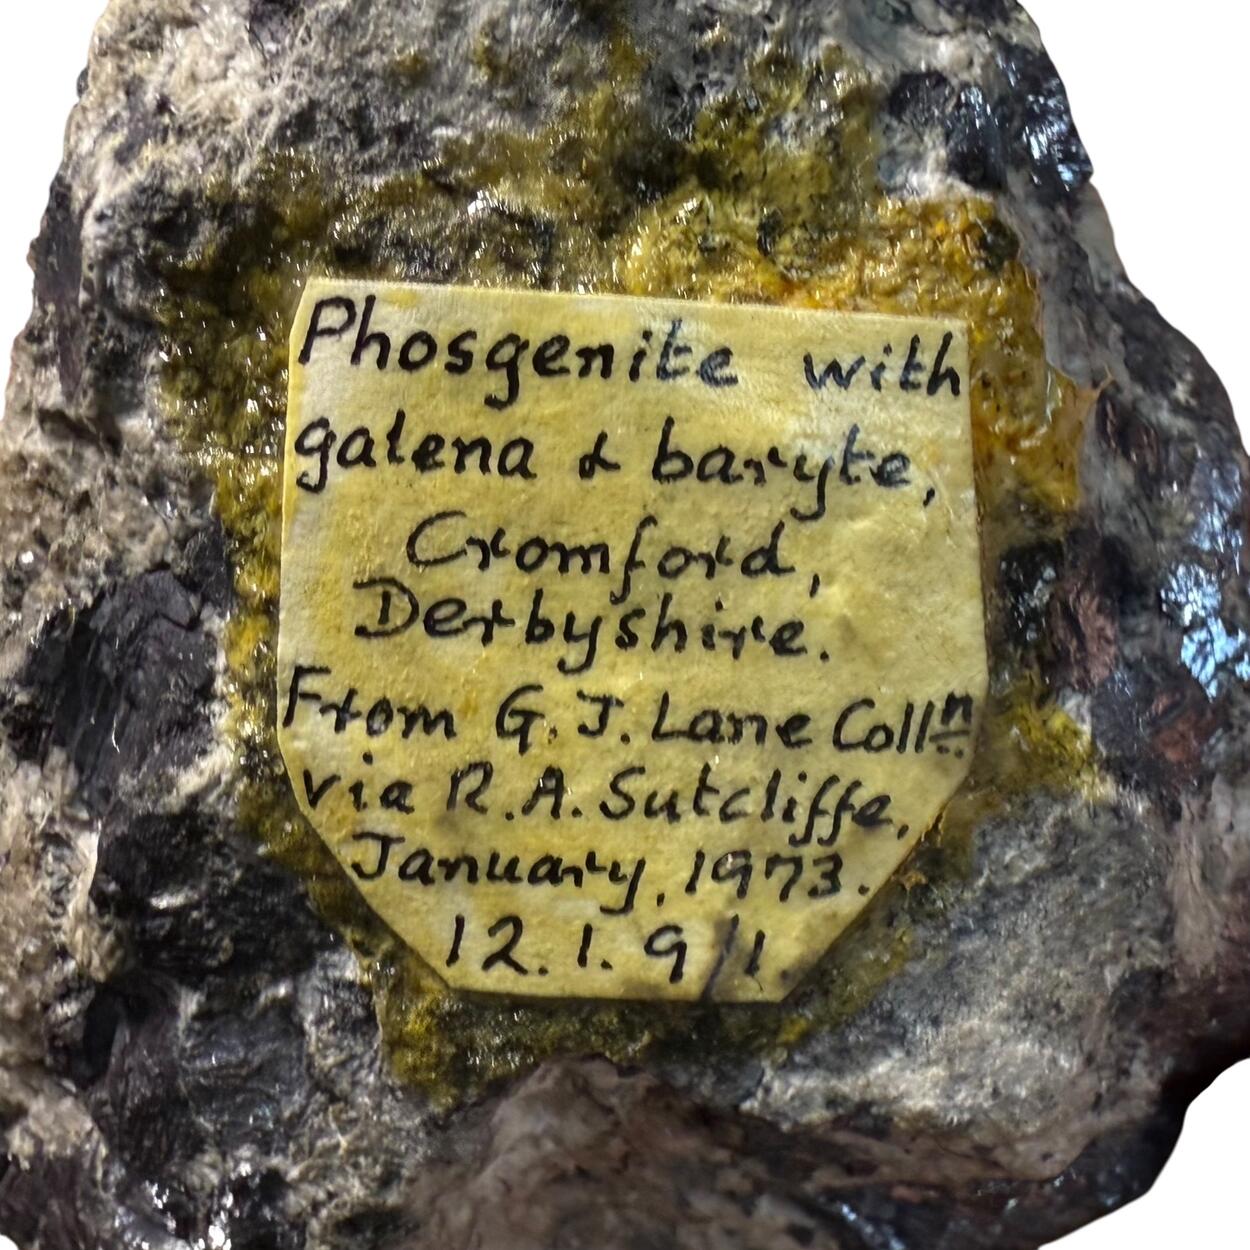 Phosgenite with
galena & baryte,
Cromford,
Derbyshire.
From G. J. Lane Collⁿ
via R. A. Sutcliffe,
January, 1973.
12. 1. 9/1.